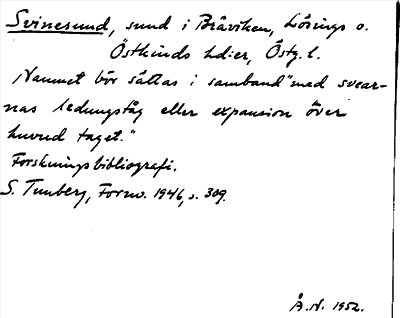 Svinesund, sund i Bråviken, Lösings o.
Östkinds hd:er, Östg. l.
"Namnet bör sättas i samband "med svear-
nas ledungståg eller expansion över
huvud taget."
Forskningsbibliografi.
S. Tunberg, Fornv. 1946, s. 309.
Å.N. 1952.